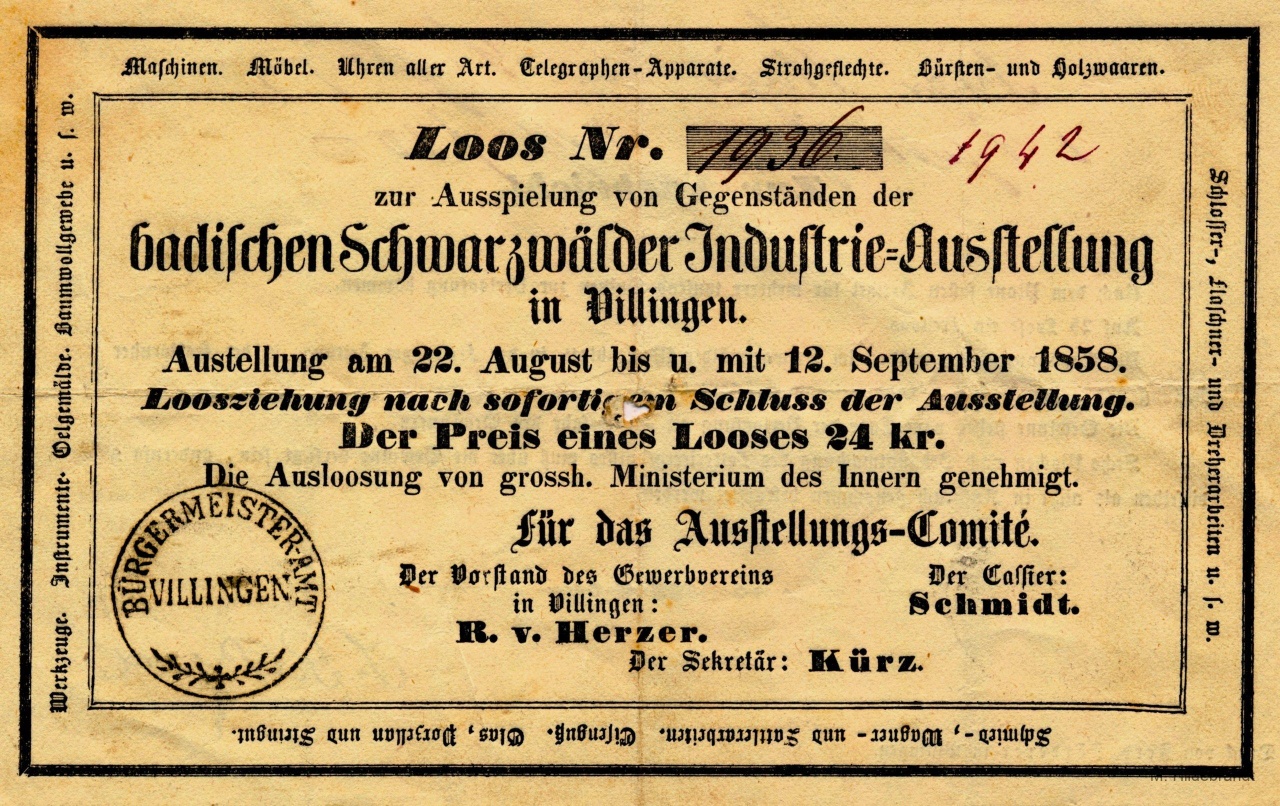 Maschinen. Möbel. Uhren aller Art. Telegraphen-Apparate. Strohgeflechte. Bürsten- und Holzwaaren.
Loos Nr. 1936. 1942
zur Ausspielung von Gegenständen der
badischen Schwarzwälder Industrie-Ausstellung
in Villingen.
Austellung am 22. August bis u. mit 12. September 1858.
Loosziehung nach sofortigem Schluss der Ausstellung.
Der Preis eines Looses 24 kr.
Die Ausloosung von grossh. Ministerium des Innern genehmigt.
Für das Ausstellungs-Comité.
Der Vorstand des Gewerbvereins
in Villingen:
R. v. Herzer.
Der Cassier:
Schmidt.
Der Sekretär: Kürz.
BÜRGERMEISTER-AMT
VILLINGEN
Schlosser-, Flaschner- und Dreherarbeiten u. s. w.
Schmied-, Wagner- und Sattlerarbeiten. Eisenguß. Glas, Porzellan und Steingut.
Werkzeuge. Instrumente. Oelgemälde. Baumwollgewebe u. s. w.
M. Hildebrandt